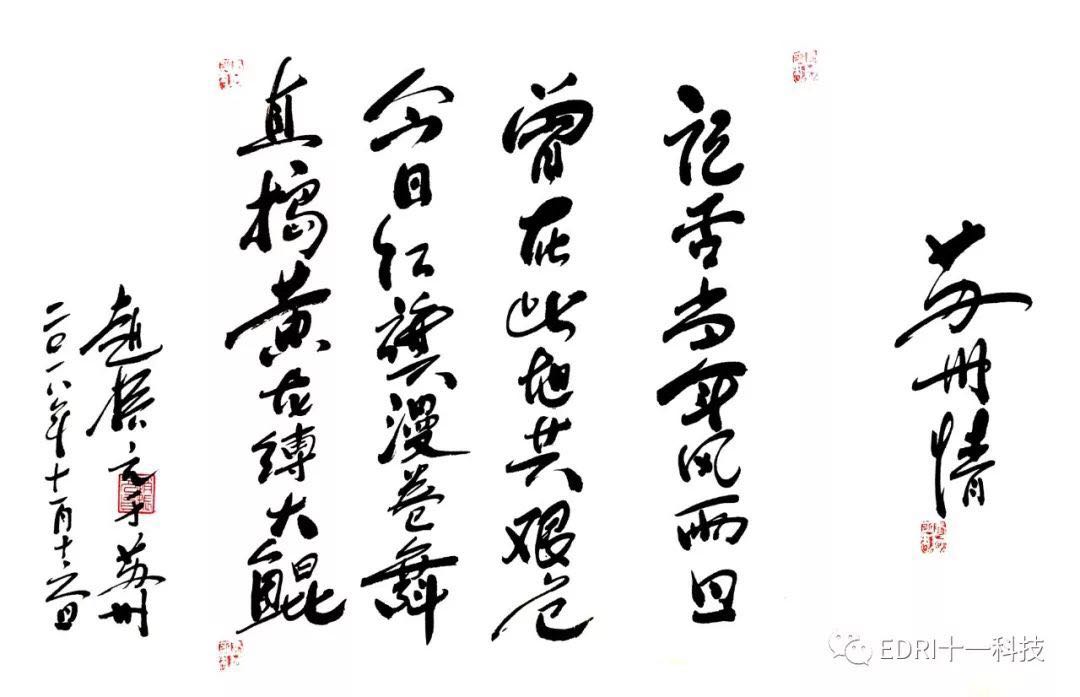 苏州情
记否当年风雨日
曾在此地共艰危
今日红旗漫卷舞
直捣黄龙缚大鲲
赵振元于苏州
二〇一八年十一月十六日
EDRI十一科技